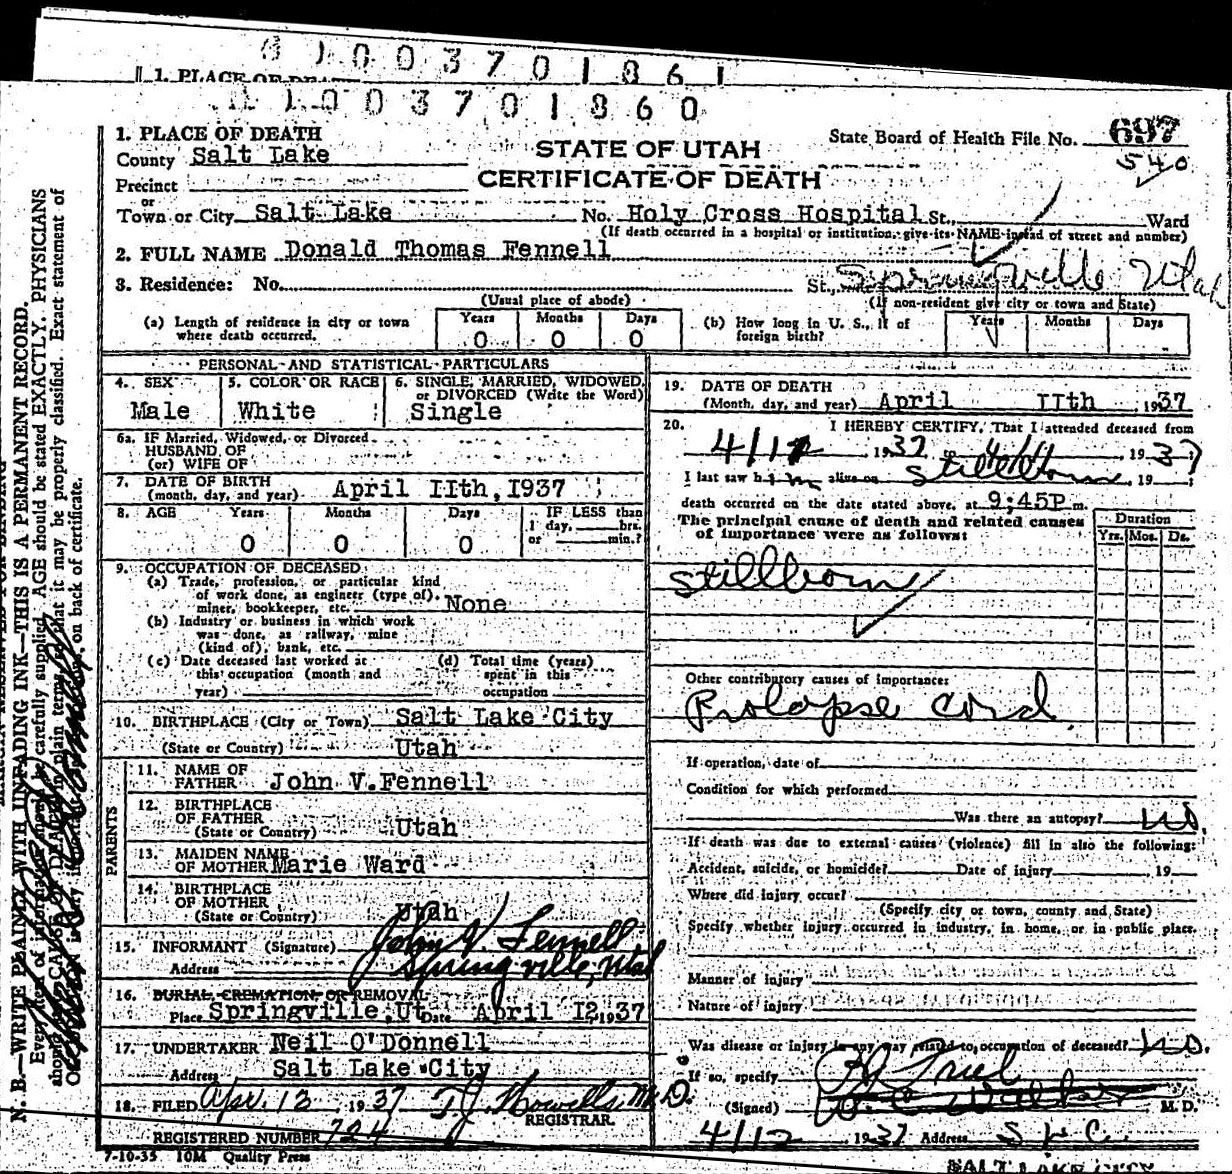 1003701861
1. PLACE OF DEATH
1003701860
1. PLACE OF DEATH
County Salt Lake
STATE OF UTAH
CERTIFICATE OF DEATH
State Board of Health File No. 697
540
Precinct
or
Town or City Salt Lake No. Holy Cross Hospital St., Ward
(If death occurred in a hospital or institution, give its NAME instead of street and number)
2. FULL NAME Donald Thomas Fennell
3. Residence: No. St., Springville Utah
(Usual place of abode) (If non-resident give city or town and State)
(a) Length of residence in city or town where death occurred. Years 0 Months 0 Days 0
(b) How long in U. S., if of foreign birth? Years Months Days
PERSONAL AND STATISTICAL PARTICULARS
4. SEX Male
5. COLOR OR RACE White
6. SINGLE, MARRIED, WIDOWED, or DIVORCED (Write the Word) Single
6a. IF Married, Widowed, or Divorced
HUSBAND OF
(or) WIFE OF
7. DATE OF BIRTH
(month, day, and year) April IIth, I937
8. AGE Years 0 Months 0 Days 0
IF LESS than
1 day, hrs.
or min.?
9. OCCUPATION OF DECEASED:
(a) Trade, profession, or particular kind
of work done, as engineer (type of),
miner, bookkeeper, etc. None
(b) Industry or business in which work
was done, as railway, mine
(kind of), bank, etc.
(c) Date deceased last worked at
this occupation (month and
year)
(d) Total time (years)
spent in this
occupation
10. BIRTHPLACE (City or Town) Salt Lake City
(State or Country) Utah
PARENTS
11. NAME OF
FATHER John V. Fennell
12. BIRTHPLACE
OF FATHER
(State or Country) Utah
13. MAIDEN NAME
OF MOTHER Marie Ward
14. BIRTHPLACE
OF MOTHER
(State or Country) Utah
15. INFORMANT (Signature) John V. Fennell
Address Springville, Utah
16. BURIAL, CREMATION, OR REMOVAL
Place Springville, Ut Date April I2, 1937
17. UNDERTAKER Neil O'Donnell
Address Salt Lake City
18. FILED Apr. 13, 1937 T.J. Howells, M.D.
REGISTRAR.
REGISTERED NUMBER 724
7-10-35 10M Quality Press
19. DATE OF DEATH
(Month, day, and year) April IIth , 1937
20. I HEREBY CERTIFY, That I attended deceased from
4/12 1937, to , 1937
I last saw him alive on Stillborn, 19
death occurred on the date stated above, at 9;45P m.
The principal cause of death and related causes
of importance were as follows:
Duration
Yrs. Mos. Ds.
Stillborn
Other contributory causes of importance:
Prolapse cord
If operation, date of
Condition for which performed
Was there an autopsy? No.
If death was due to external causes (violence) fill in also the following:
Accident, suicide, or homicide? Date of injury 19
Where did injury occur?
(Specify city or town, county and State)
Specify whether injury occurred in industry, in home, or in public place.
Manner of injury
Nature of injury
Was disease or injury in any way related to occupation of deceased? No.
If so, specify
(Signed) M. D.
4/12 1937 Address S L C.
SALT LAKE CITY
N. B.—WRITE PLAINLY WITH UNFADING INK—THIS IS A PERMANENT RECORD.
Every item of information should be carefully supplied. AGE should be stated EXACTLY. PHYSICIANS
should state CAUSE OF DEATH in plain terms, so that it may be properly classified. Exact statement of
on back of certificate.